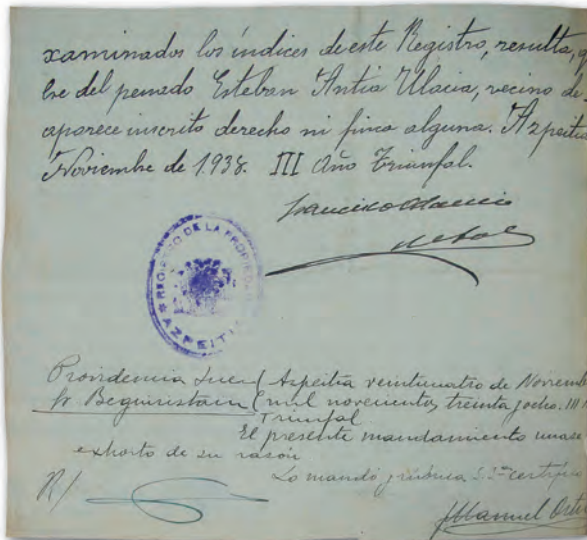 xaminados los índices de este Registro, resulta, q
bre del penado Esteban Antia Ulacia, vecino de
aparece inscrito derecho ni finca alguna. Azpeitia
Noviembre de 1.938. III Año Triunfal.
Francisco
REGISTRO DE LA PROPIEDAD
AZPEITIA
Providencia Juez Azpeitia veinticuatro de Noviemb
Sr Beguiristain mil novecientos treinta y ocho. III
Triunfal
El presente mandamiento unase
exhorto de su razón
Lo mandó y rubrica S.Sª certifico
R/
Manuel